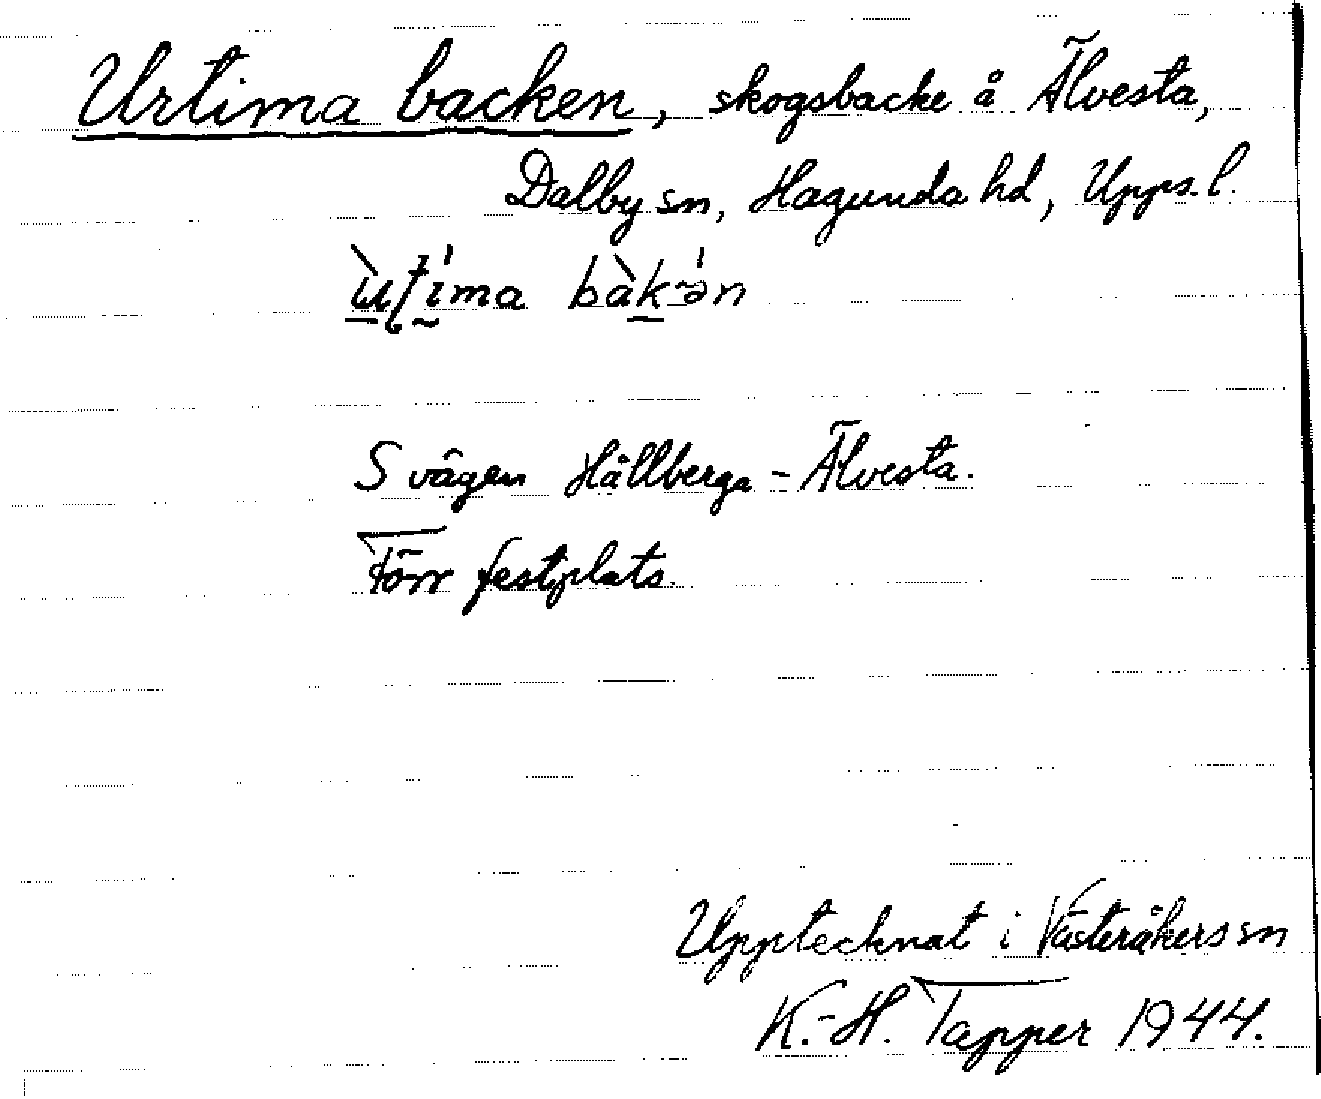 Urtima backen, skogsbacke å Älvesta,
Dalby sn, Hagunda hd, Upps. l.
S vägen Hållberga - Älvesta.
Förr festplats.
Upptecknat i Västeråkers sn
K.-H. Tapper 1944.